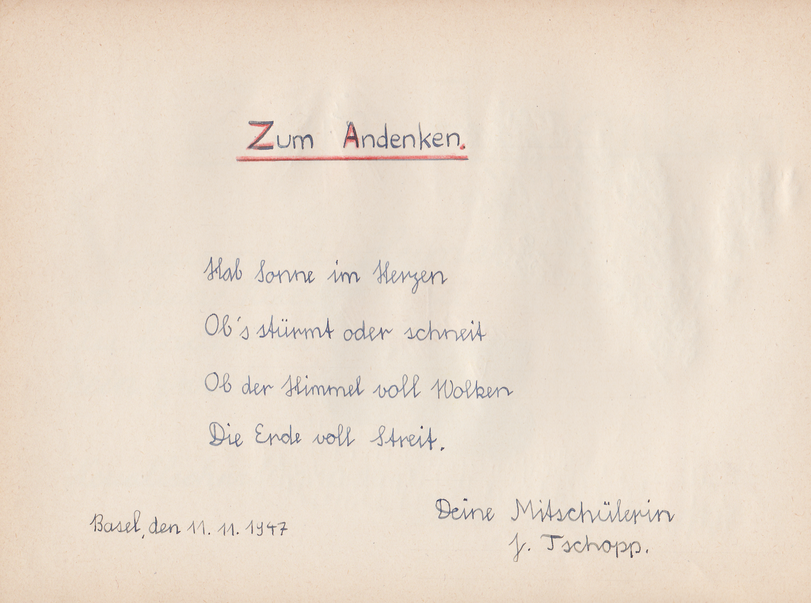 Zum Andenken.
Hab Sonne im Herzen
Ob's stürmt oder schneit
Ob der Himmel voll Wolken
Die Erde voll Streit.
Deine Mitschülerin
J. Tschopp.
Basel, den 11. 11. 1947